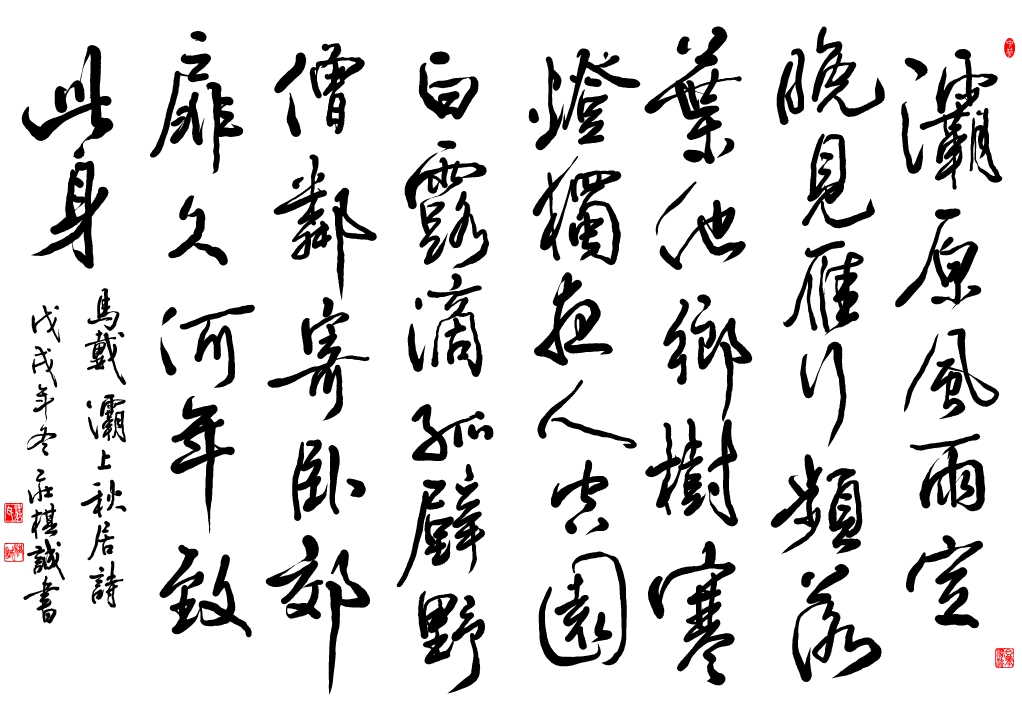 灞原風雨定
晚見雁行頻落
葉他鄉樹寒
燈獨夜人空園
白露滴孤壁野
僧鄰寄臥郊
扉久何年致
此身
馬戴灞上秋居詩
戊戌年冬莊棋誠書